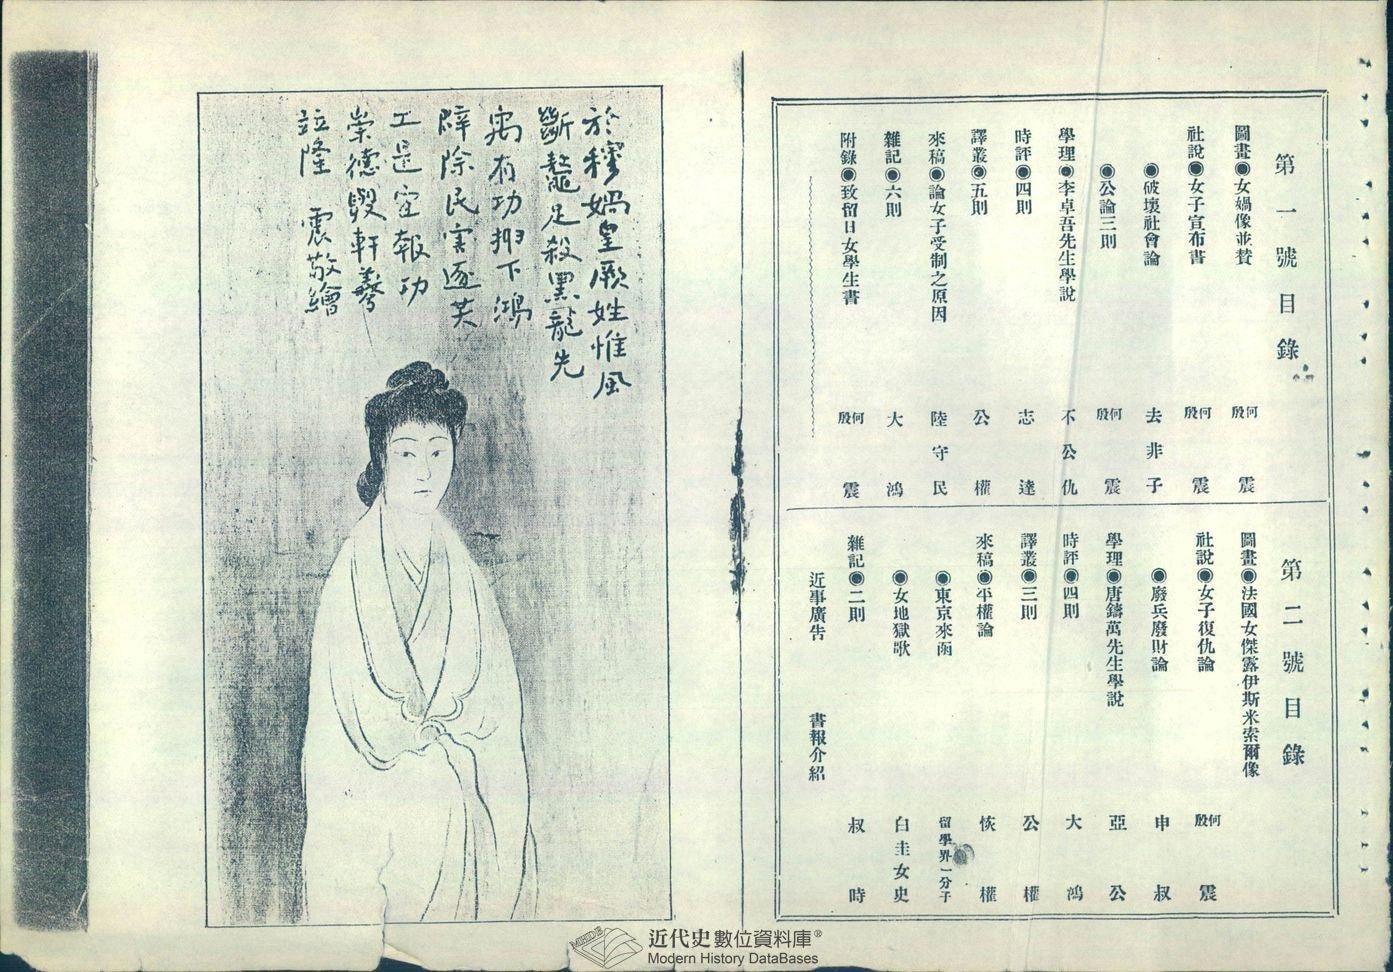 第一號目錄
圖畫◉女媧像並贊 何殷震
社說◉女子宣布書 何殷震
◉破壞社會論 去非子
◉公論三則 何殷震
學理◉李卓吾先生學說 不公仇
時評◉四則 志達
譯叢◉五則 公權
來稿◉論女子受制之原因 陸守民
雜記◉六則 大鴻
附錄◉致留日女學生書 何殷震
第二號目錄
圖畫◉法國女傑露伊斯米索爾像
社說◉女子復仇論 何殷震
◉廢兵廢財論 申叔
學理◉唐鑄萬先生學說 亞公
時評◉四則 大鴻
譯叢◉三則 公權
來稿◉平權論 恢權
◉東京來函 留學界一分子
◉女地獄歌 白圭女史
雜記◉二則 叔時
近事廣告 書報介紹
於穆媧皇厥姓惟風
斷鼇足殺黑龍先
禹有功抑下鴻
辟除民害逐共
工是宜報功
崇德毀軒羲
竝隆 震敬繪
近代史數位資料庫®
MHDB
Modern History DataBases